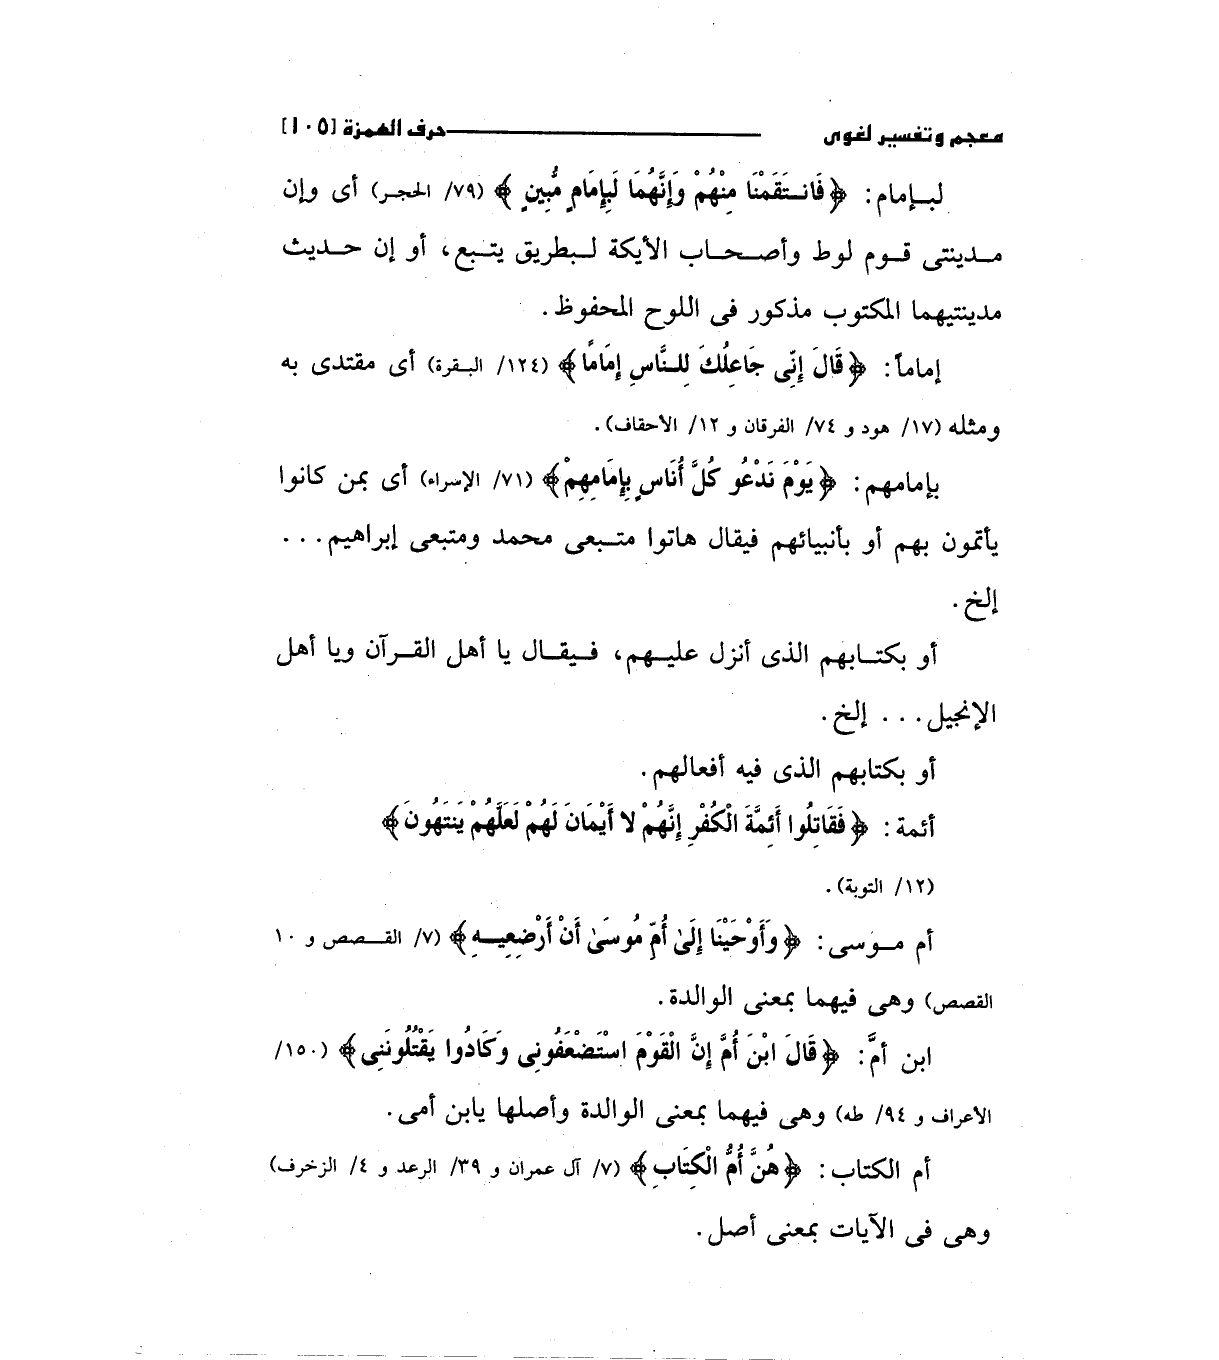 معجم وتفسير لغوى حرف الهمزة [١٠٥]
لبإمام: ﴿فَانتَقَمْنَا مِنْهُمْ وَإِنَّهُمَا لَبِإِمَامٍ مُّبِينٍ﴾ (٧٩/ الحجر) أى وإن
مدينتى قوم لوط وأصحاب الأيكة لبطريق يتبع، أو إن حديث
مدينتيهما المكتوب مذكور فى اللوح المحفوظ.
إماماً: ﴿قَالَ إِنِّى جَاعِلُكَ لِلنَّاسِ إِمَامًا﴾ (١٢٤/ البقرة) أى مقتدى به
ومثله (١٧/ هود و ٧٤/ الفرقان و ١٢/ الأحقاف).
بإمامهم: ﴿يَوْمَ نَدْعُو كُلَّ أُنَاسٍ بِإِمَامِهِمْ﴾ (٧١/ الإسراء) أى بمن كانوا
يأتمون بهم أو بأنبيائهم فيقال هاتوا متبعى محمد ومتبعى إبراهيم...
إلخ.
أو بكتابهم الذى أنزل عليهم، فيقال يا أهل القرآن ويا أهل
الإنجيل... إلخ.
أو بكتابهم الذى فيه أفعالهم.
أئمة: ﴿فَقَاتِلُوا أَئِمَّةَ الْكُفْرِ إِنَّهُمْ لا أَيْمَانَ لَهُمْ لَعَلَّهُمْ يَنتَهُونَ﴾
(١٢/ التوبة).
أم موسى: ﴿وَأَوْحَيْنَا إِلَىٰ أُمِّ مُوسَىٰ أَنْ أَرْضِعِيهِ﴾ (٧/ القصص و ١٠
القصص) وهى فيهما بمعنى الوالدة.
ابن أمَّ: ﴿قَالَ ابْنَ أُمَّ إِنَّ الْقَوْمَ اسْتَضْعَفُونِى وَكَادُوا يَقْتُلُونَنِى﴾ (١٥٠/
الأعراف و ٩٤/ طه) وهى فيهما بمعنى الوالدة وأصلها يابن أمى.
أم الكتاب: ﴿هُنَّ أُمُّ الْكِتَابِ﴾ (٧/ آل عمران و ٣٩/ الرعد و ٤/ الزخرف)
وهى فى الآيات بمعنى أصل.